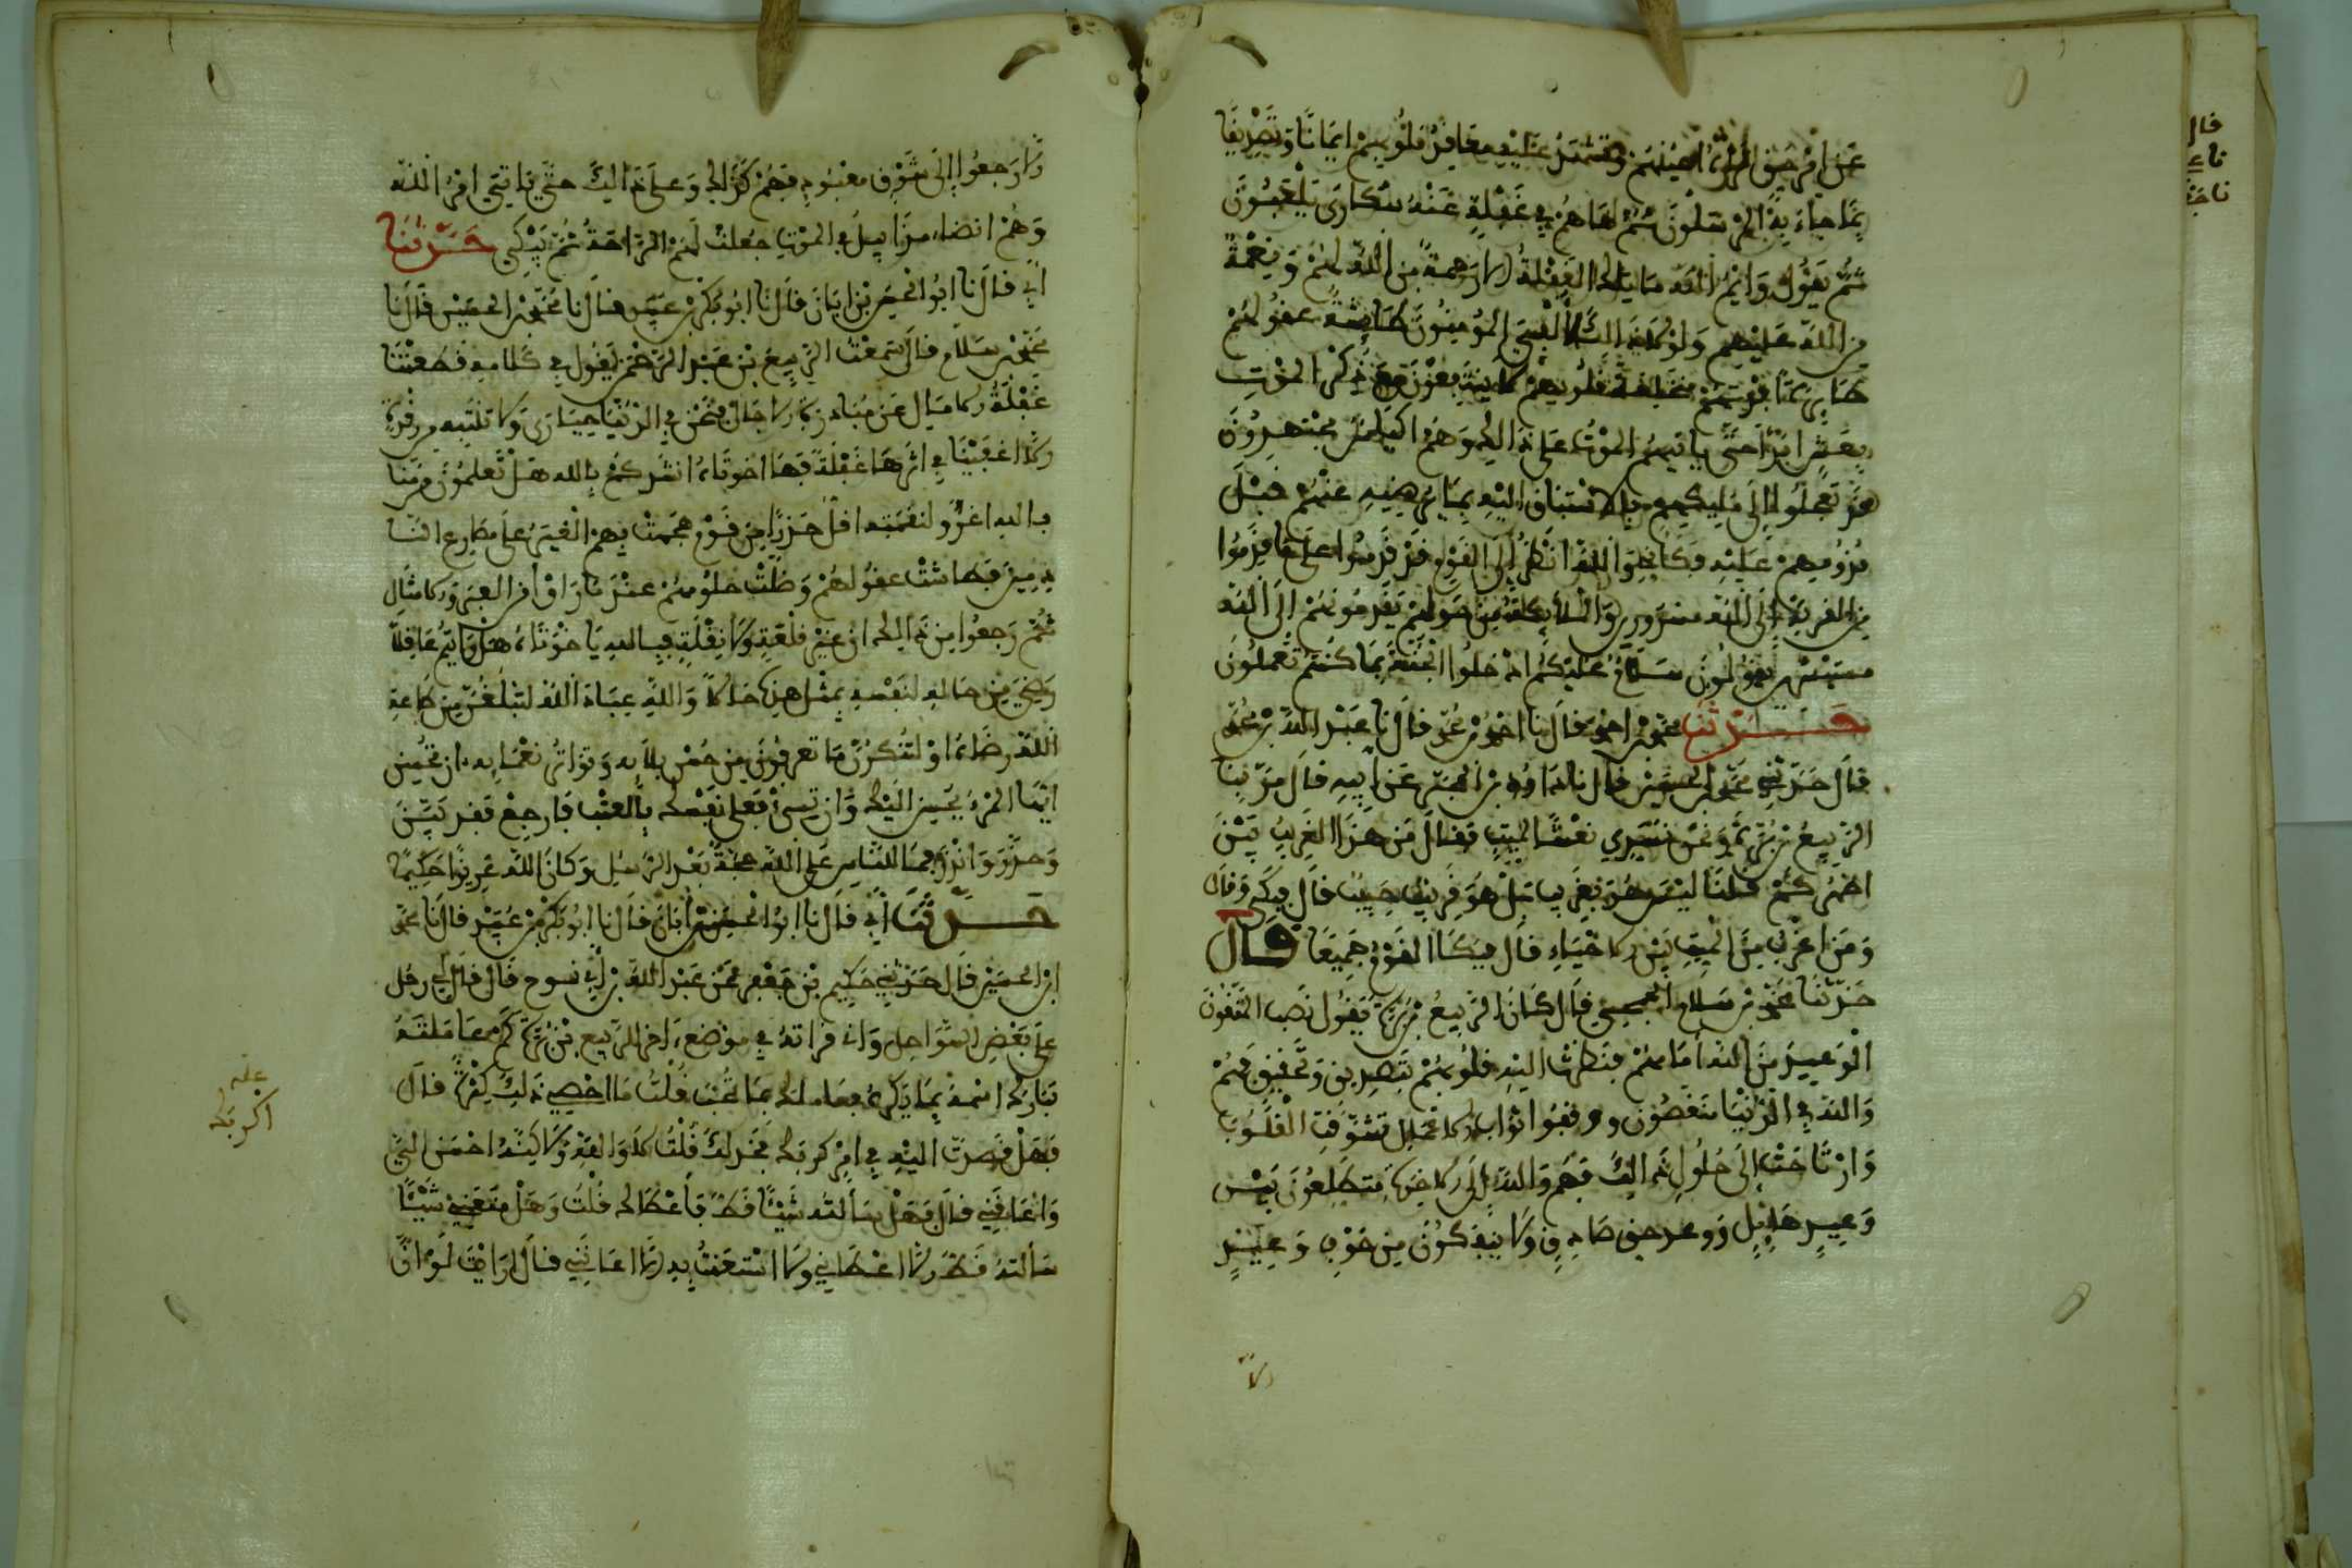 عن امر حق الله اعينهم وتشتد عليه معاقد قلوبهم ايمانا وتصديقا
بما جاء به المرسلون ثم ها هم في غفلة عنه سكارى يلعبون
ثم يقول وايم الله ما تلك الغفلة الا رحمة من الله لهم ونعمة
من الله عليهم ولولا ذلك لالفي المؤمنون طائشة عقولهم
طائرة افئدتهم منخلعة قلوبهم لا ينتفعون مع ذكر الموت
بعيش ابدا حتى ياتيهم الموت على ذلك وهم اكياس مجتهدون
قد تعجلوا الى مليكهم بالاشتياق اليه بما يرضيه عنهم قبل
قدومهم عليه فكاني والله انظر الى القوم قد قدموا على ما قدموا
من القربة الى الله مسرورين والملائكة من حولهم يقدمونهم الى الله
مستبشرين يقولون سلام عليكم ادخلوا الجنة بما كنتم تعملون
حدثنا محمد بن احمد قال نا احمد بن محمد قال نا عبد الله بن محمد
قال حدثني محمد بن الحسين قال نا داود بن المحبر عن ابيه قال مر بنا
الربيع بن برة ونحن نسوي نعشا لميت فقال من هذا الغريب بين
اظهركم قلنا ليس هو بغريب بل هو قريب حبيب قال فبكى وقال
ومن اغرب من الميت بين الاحياء قال فبكى القوم جميعا قال
حدثنا محمد بن سلام الجمحي قال كان الربيع بن برة يقول نصب المتقون
الوعيد من الله امامهم فنظرت اليه قلوبهم بتصديق وتحقيق فهم
والله في الدنيا منغصون ووقفوا ثواب الاعمال تشوفت القلوب
وارتاحت الى حلول ذلك فهم والله الى الاخرة متطلعون بين
وعيد هايل ووعد حق صادق ولا ينفكون من خوف وعيد
الا
الا رجعوا الى شوق موعوده فهم كذلك وعلى ذلك حتى ياتي امر الله
وهم ايضا مزابيل في الموت جعلت لهم الراحة ثم يبكي حدثنا
ابي قال نا ابو الحسن بن ابان قال نا ابو بكر بن عبيد قال نا محمد بن الحسين قال نا
محمد بن سلام قال سمعت الربيع بن عبد الرحمن يقول في كلامه قطعتنا
غفلة الامال عن مبادرة الاجال فنحن في الدنيا حيارى ولا ننتبه من رقدة
الا اعقبتنا في اثرها غفلة فيا اخوتاه انشدكم بالله هل تعلمون مومنا
بالله اغر ولنقمته اقل حذرا من قوم هجمت بهم الغير على مصارع النا
دمين فطاشت عقولهم وضلت حلومهم عندما راوا من العبر والامثال
ثم رجعوا من ذلك الى غير قلعة ولا نقلة فبالله يا اخوتاه هل رايتم عاقلا
رضي من حاله لنفسه بمثل هذه حالا والله عباد الله لتبلغن من طاعة
الله رضاه او لتنكرن ما تعرفون من حسن بلايه وتواتر نعمايه ان تحسن
ايها المرء يحسن اليك وان تسئ فعلى نفسك بالعتب فارجع فقد بين
وحذر وانذر فما للناس على الله حجة بعد الرسل وكان الله عزيزا حكيما
حدثنا ابي قال نا ابو الحسن بن ابان قال نا ابو بكر بن عبيد قال نا محمد
ابن الحسين قال حدثني حكيم بن جعفر عن عبد الله بن ابي نوح قال قال لي رجل
على بعض السواحل وان قراته في موضع اخر للربيع بن برة كم عاملته
تبارك اسمه بما يكره فعاملك بما تحب قلت ما احصي ذلك كثرة قال
فهل قصدت اليه في امر كربك فخذلك قلت لا والله ولكنه احسن الي
واعانني قال فهل سالته شيئا قط فاعطاك قلت وهل منعني شيئا
سالته قط الا اعطاني ولا استعنت به الا اعانني قال ارايت لو ان
علـه
اكربك
قال
نا ع